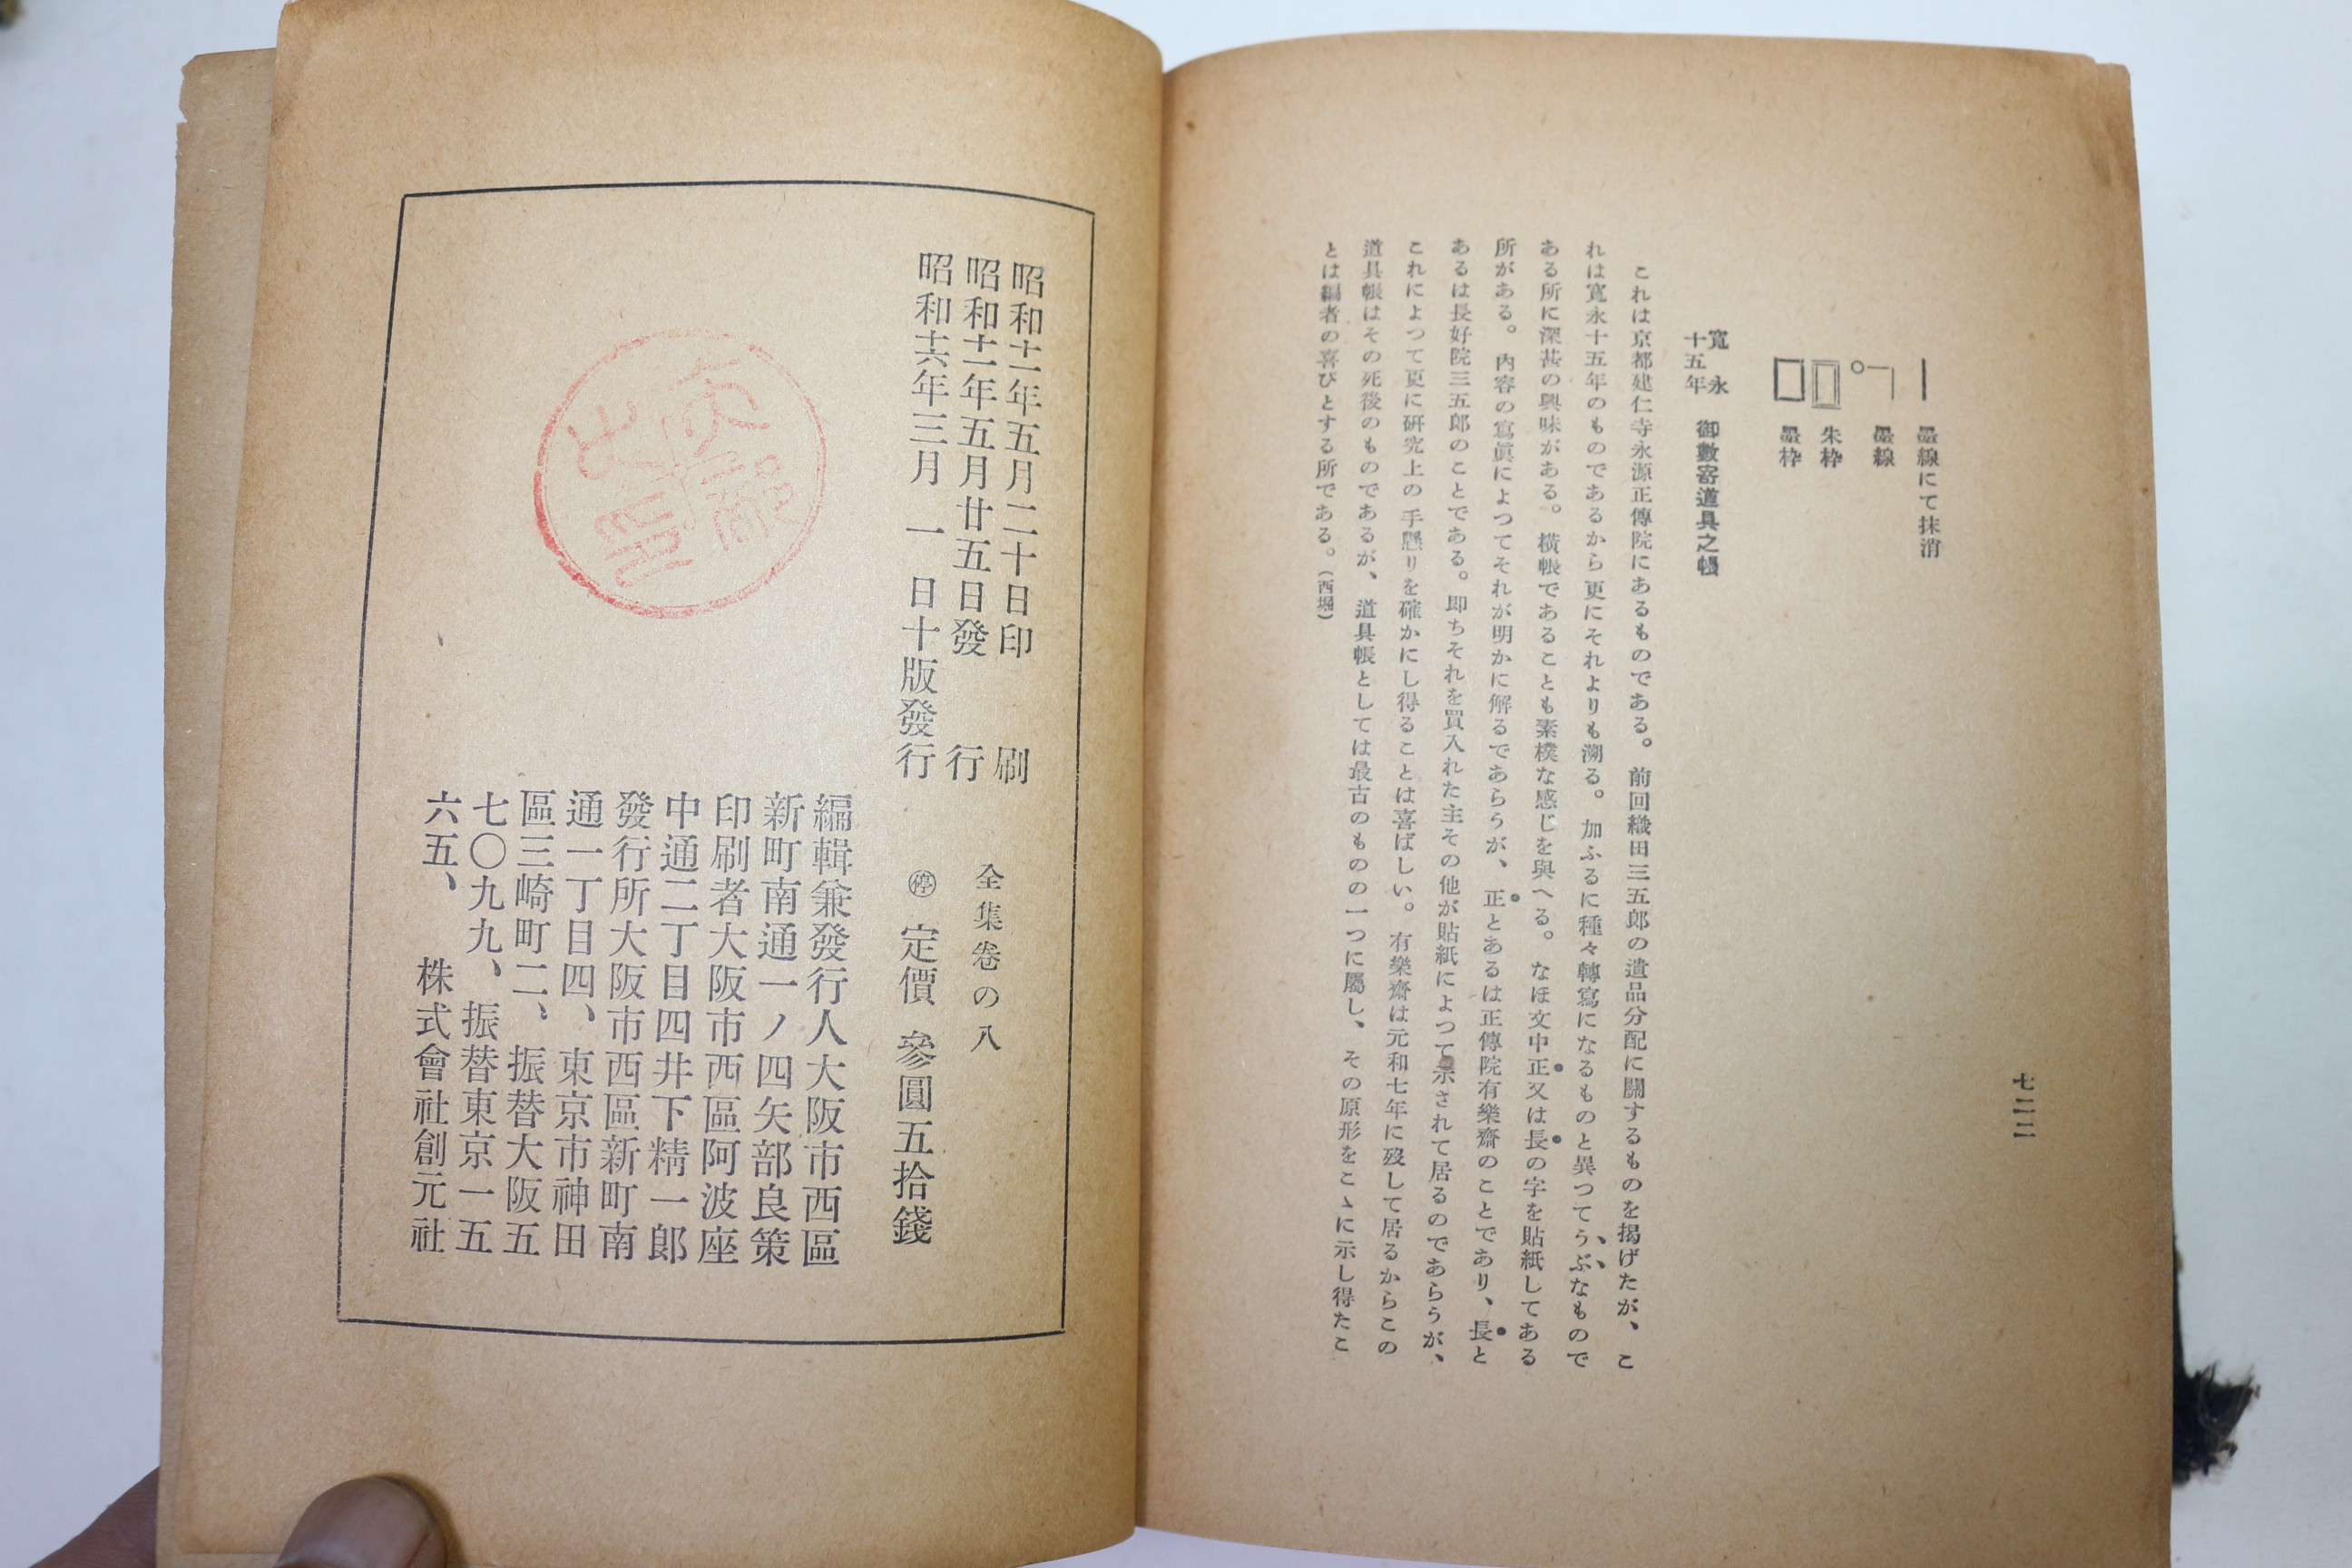 七二二
墨線にて抹消
墨線
朱枠
墨枠
寬永十五年 御數寄道具之帳
これは京都建仁寺永源正傳院にあるものである。前回織田三五郎の遺品分配に關するものを揭げたが、こ
れは寬永十五年のものであるから更にそれよりも溯る。加ふるに種々轉寫になるものと異つてうぶなもので
ある所に深甚の興味がある。橫帳であることも素樸な感じを與へる。なほ文中正又は長の字を貼紙してある
所がある。內容の寫眞によつてそれが明かに解るであらうが、正とあるは正傳院有樂齋のことであり、長と
あるは長好院三五郎のことである。卽ちそれを買入れた主その他が貼紙によつて示されて居るのであらうが、
これによつて更に硏究上の手懸りを確かにし得ることは喜ばしい。有樂齋は元和七年に歿して居るからこの
道具帳はその死後のものであるが、道具帳としては最古のものの一つに屬し、その原形をこゝに示し得たこ
とは編者の喜びとする所である。（西堀）
昭和十一年五月二十日印刷
昭和十一年五月廿五日發行
昭和十六年三月一日十版發行
全集卷の八
㊡ 定價 參圓五拾錢
編輯兼發行人大阪市西區
新町南通一ノ四矢部良策
印刷者大阪市西區阿波座
中通二丁目四井下精一郎
發行所大阪市西區新町南
通一丁目四、東京市神田
區三崎町二、振替大阪五
七〇九九、振替東京一五
六五、株式會社創元社